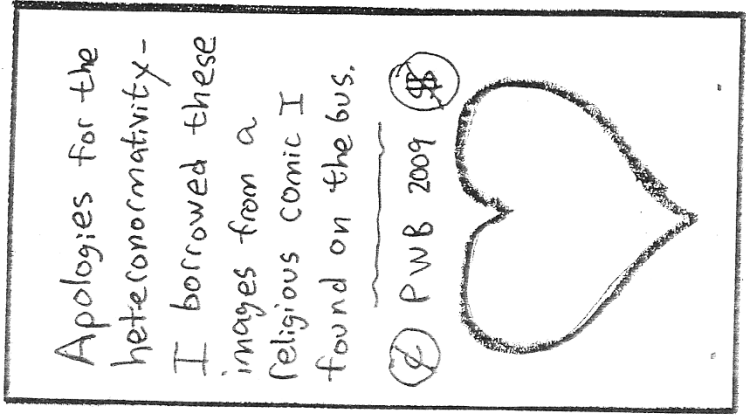 Apologies for the
heteronormativity-
I borrowed these
images from a
religious comic I
found on the bus.
¢ PWB 2009 $